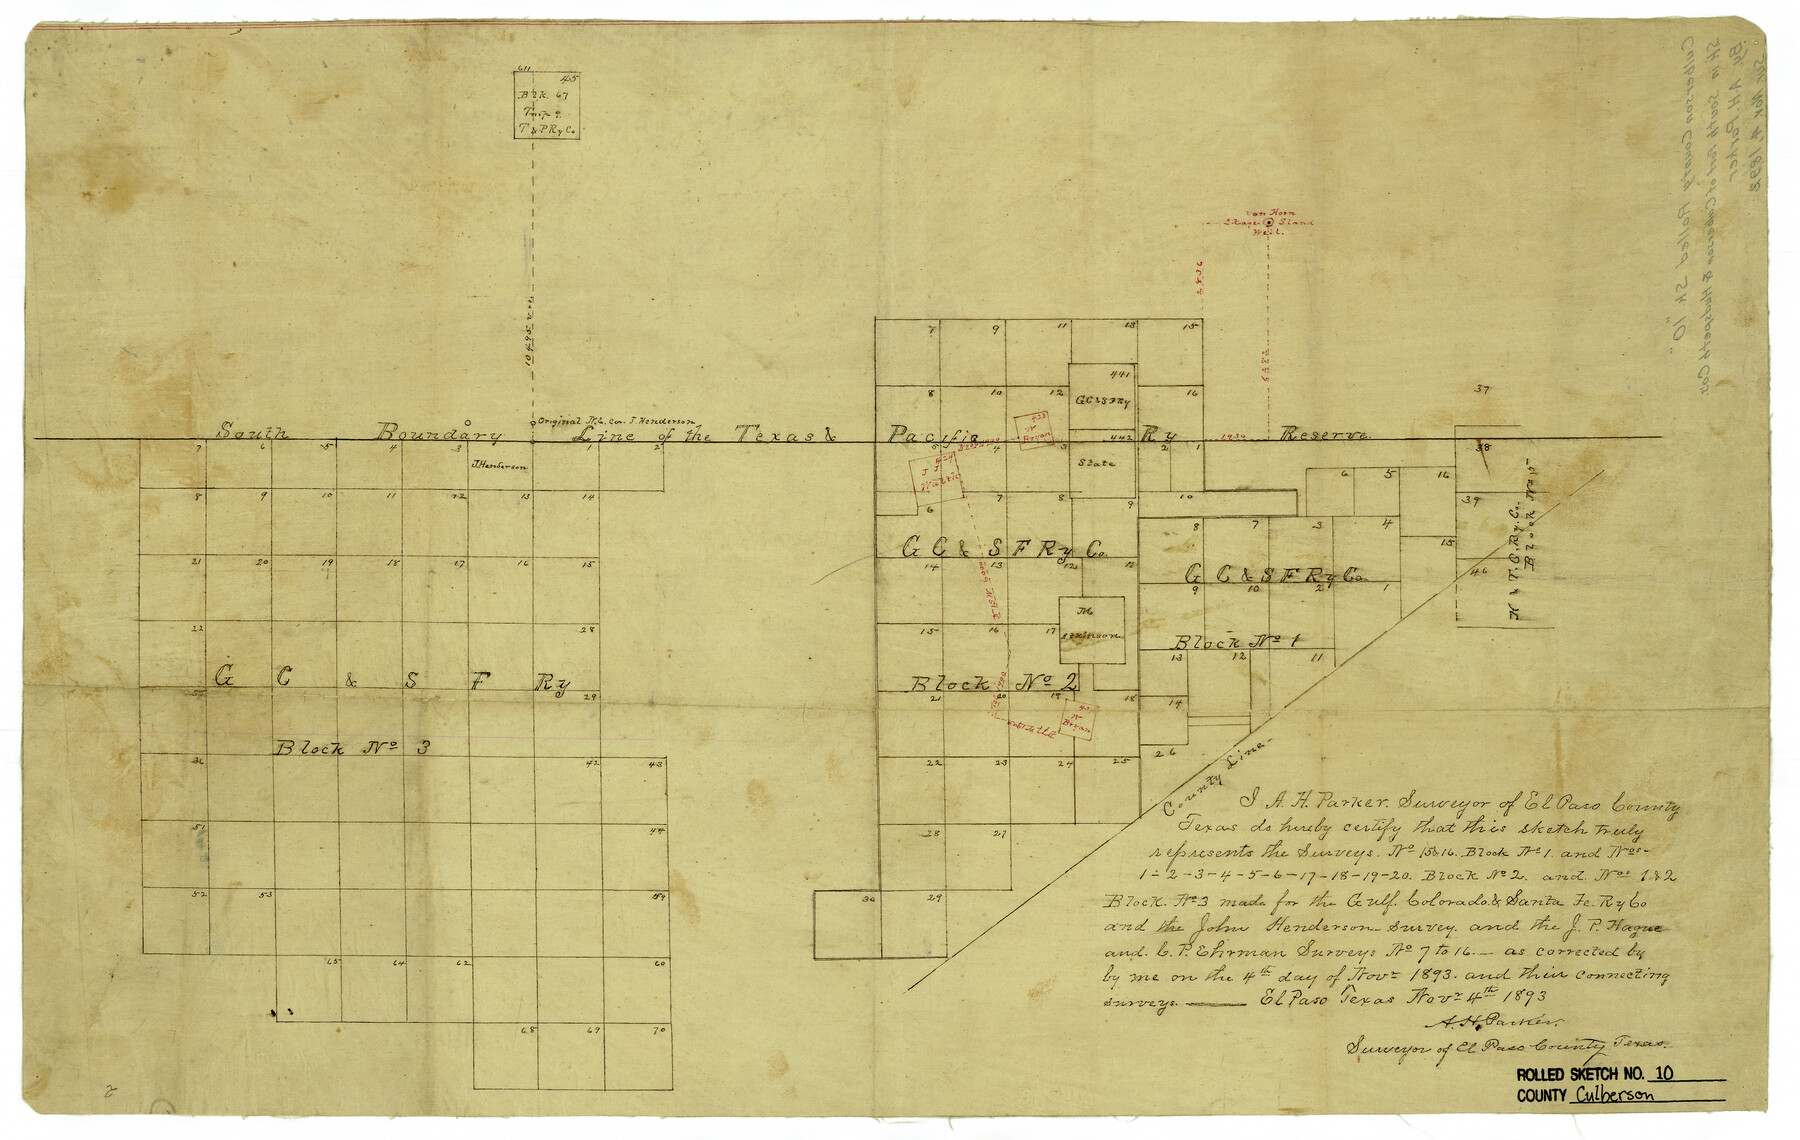 611
455
Blk 67
Twp 9.
T & P Ry Co
Van Horn
Stage Stand
Well.
Original N.E. Co. J. Henderson
South Boundary Line of the Texas & Pacific Ry Reserve
7 5 4 3 J. Henderson 1 2
8 9 10 11 12 13 14
21 20 19 18 17 16 15
22 28
G C & S F Ry
29
Block No 3
36 42 43
51 44
52 53 59
65 64 62 60
68 69 70
7 9 11 13 15
8 10 12 441 16
G C & S F Ry
442
428
W
Bryan
429
J J
5 4 3 State 2 1
6 7 8 9 10
G C & S F Ry Co.
14 13 12 11
M
15 16 17
Block No 2
21 20 19 18
W
Bryan
22 23 24 25
28 27
30 29
6 5 16
8 7 3 4 15
G C & S F Ry Co
9 10 2 1
Block No 1
13 12 11
14
26
37
38
39
46
Block No
County Line
I A. H. Parker. Surveyor of El Paso County
Texas do hereby certify that this sketch truly
represents the Surveys. No 15&16. Block No 1. and Nos-
1-2-3-4-5-6-17-18-19-20. Block No 2. and. Nos 1&2
Block. No 3 made for the Gulf. Colorado. & Santa Fe. Ry Co
and the John Henderson survey. and the J. P. Hague
and. C. P. Ehrman Surveys No 7 to 16.— as corrected by
by me on the 4th day of Novr 1893. and their connecting
surveys. —— El Paso Texas Novr 4th 1893
A. H. Parker.
Surveyor of El Paso County Texas.
ROLLED SKETCH NO. 10
COUNTY Culberson
Culberson County Rolled Sk "10"
Sk in South Part of Culberson & Hudspeth Cos
By A.H. Parker
2